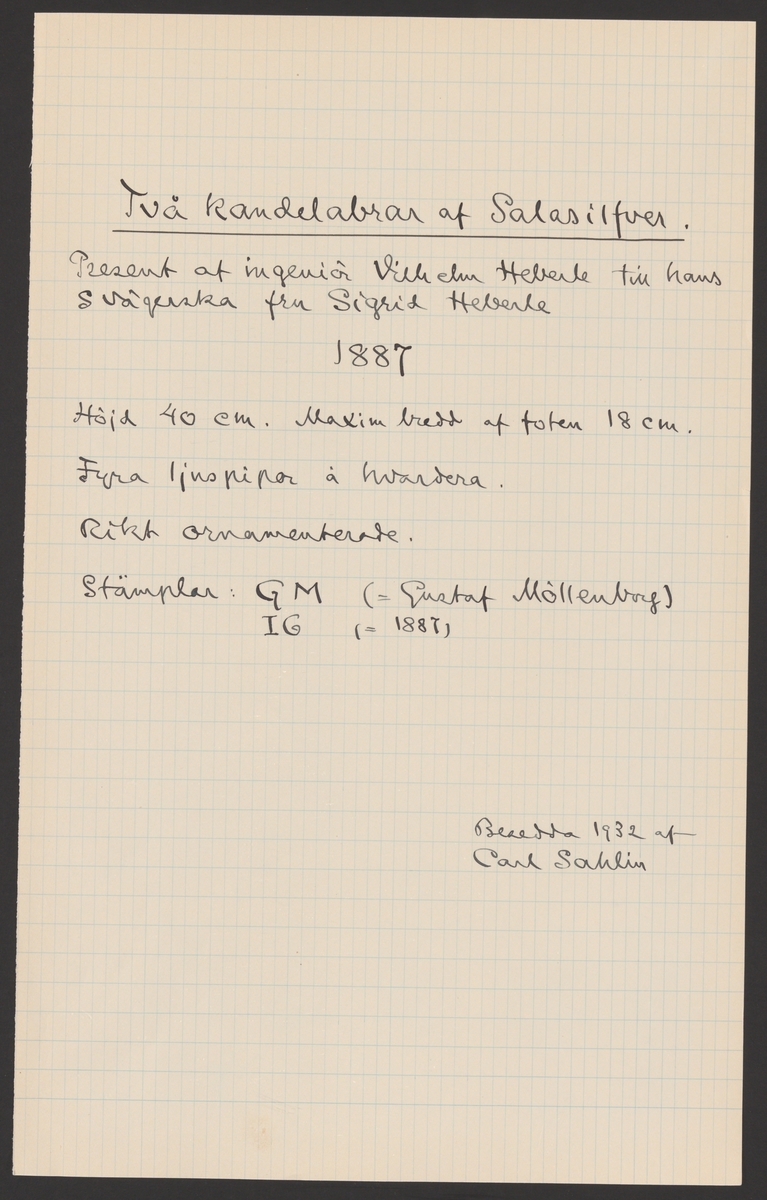 Två kandelabrar af Salasilfver.
Present af ingeniör Vilhelm Heberle till hans
svägerska fru Sigrid Heberle
1887
Höjd 40 cm. Maxim bredd af foten 18 cm.
Fyra ljuspipor å hvardera.
Rikt ornamenterade.
Stämplar: GM (= Gustaf Möllenborg)
IG (= 1887)
Besedda 1932 af
Carl Sahlin